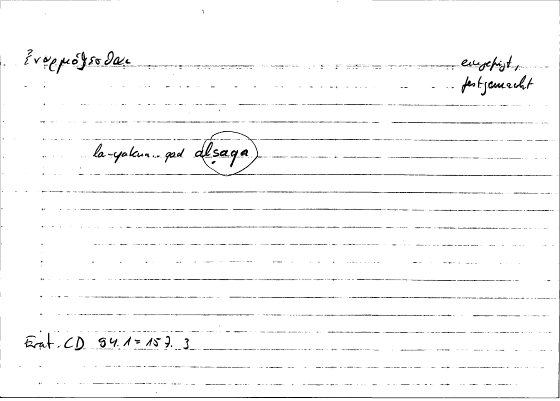 ἐναρμόζεσθαι
eingefügt,
festgemacht
la-yakun.. qad alṣaqa
Erat. CD 54.1 = 157. 3